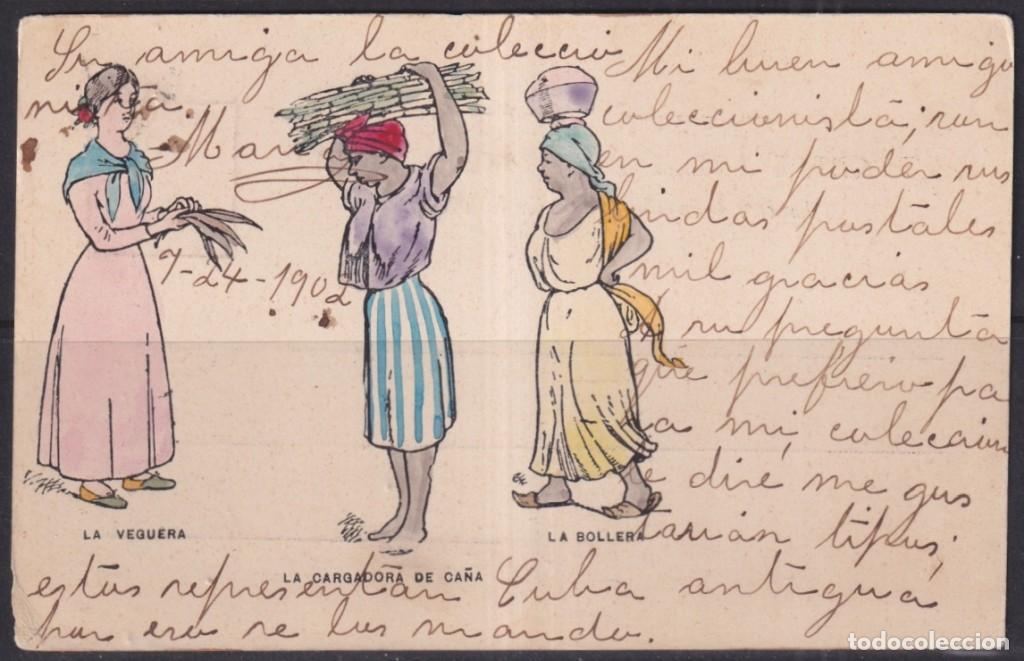 Mi buen amigo
coleccionista; son
en mi poder sus
lindas postales
mil gracias
a su pregunta
que prefiero pa
ra mi coleccion
le diré me gus
tarian tipos;
estos representan Cuba antigua
por eso se los mando.
Su amiga la coleccio
nista
9-24-1902
LA VEGUERA
LA CARGADORA DE CAÑA
LA BOLLERA
todocoleccion.net